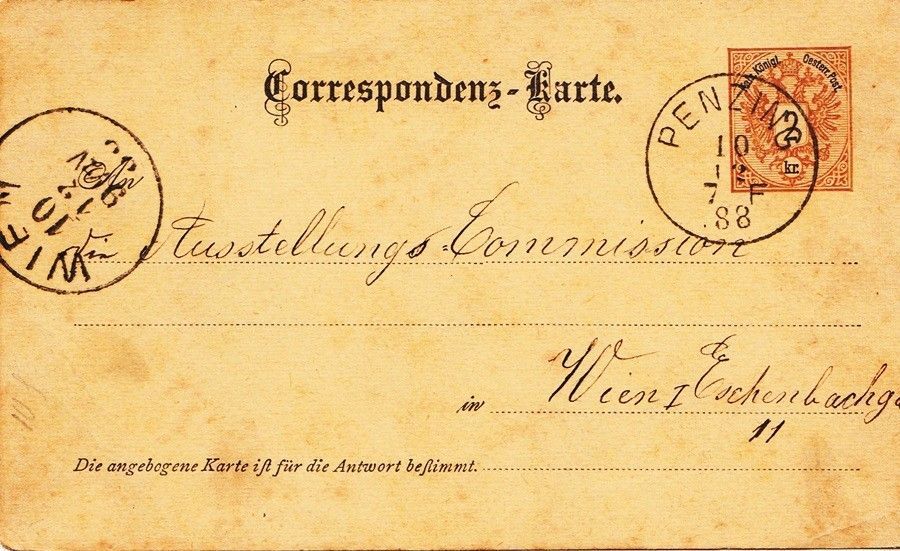 Correspondenz-Karte.
Kais. Königl. Oesterr. Post
2
kr.
PENZING
10
12
7 F
88
WIEN
10
An
die Ausstellungs-Commission
in Wien I Eschenbachga
11
Die angebogene Karte iſt für die Antwort beſtimmt.